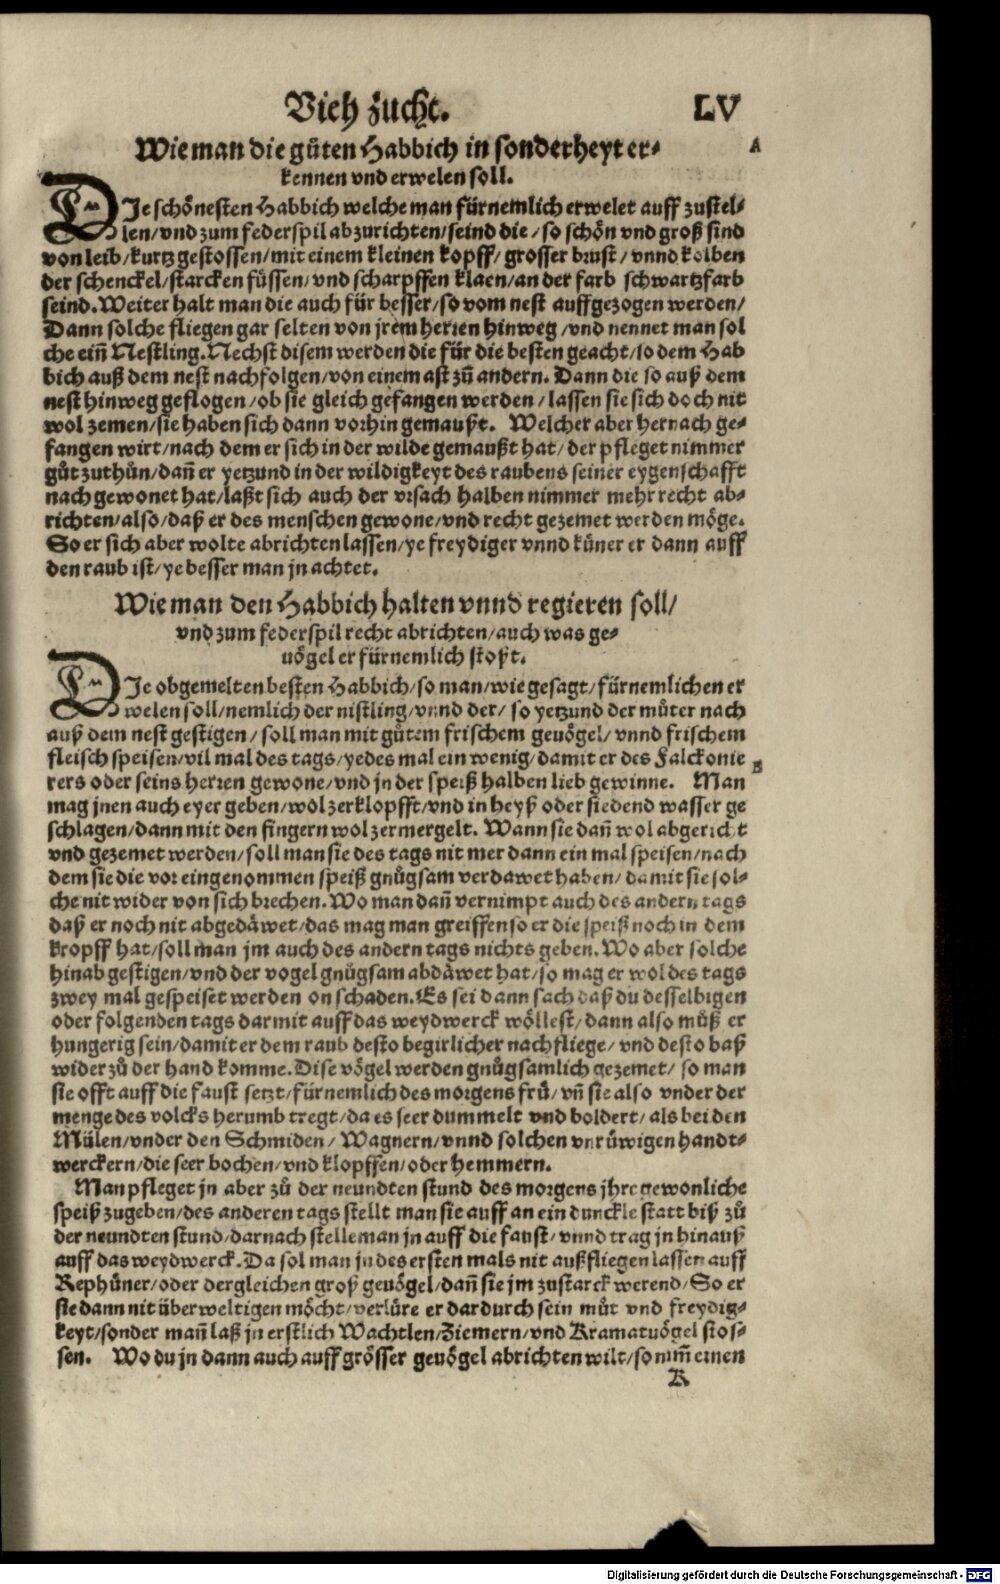 Vieh zucht. LV
Wie man die gůten Habbich in sonderheyt er⸗ A
kennen vnd erwelen soll.
DIe schönesten Habbich welche man fürnemlich erwelet auff zustel⸗
len/vnd zum federspil abzurichten/seind die/so schön vnd groß sind
von leib/kurtz gestossen/mit einem kleinen kopff/grosser brust/vnnd kolben
der schenckel/starcken füssen/vnd scharpffen klaen/an der farb schwartzfarb
seind. Weiter halt man die auch für besser/so vom nest auffgezogen werden/
Dann solche fliegen gar selten von jrem herren hinweg/vnd nennet man sol
che ein̄ Nestling. Nechst disem werden die für die besten geacht/so dem Hab
bich auß dem nest nachfolgen/von einem ast zů andern. Dann die so auß dem
nest hinweg geflogen/ob sie gleich gefangen werden/lassen sie sich doch nit
wol zemen/sie haben sich dann vorhin gemaußt. Welcher aber hernach ge⸗
fangen wirt/nach dem er sich in der wilde gemaußt hat/der pfleget nimmer
gůt zuthůn/dan̄ er yetzund in der wildigkeyt des raubens seiner eygenschafft
nach gewonet hat/laßt sich auch der vrsach halben nimmer mehr recht ab⸗
richten/also/daß er des menschen gewone/vnd recht gezemet werden möge.
So er sich aber wolte abrichten lassen/ye freydiger vnnd küner er dann auff
den raub ist/ye besser man jn achtet.
Wie man den Habbich halten vnnd regieren soll/
vnd zum federspil recht abrichten/auch was ge⸗
uögel er fürnemlich stoßt.
DIe obgemelten besten Habbich/so man/wie gesagt/fürnemlichen er
welen soll/nemlich der nistling/vnnd der/so yetzund der můter nach
auß dem nest gestigen/soll man mit gůtem frischem geuögel/vnnd frischem
fleisch speisen/vil mal des tags/yedes mal ein wenig/damit er des Falckonie B
rers oder seins herren gewone/vnd jn der speiß halben lieb gewinne. Man
mag jnen auch eyer geben/wol zerklopfft/vnd in heyß oder siedend wasser ge
schlagen/dann mit den fingern wol zermergelt. Wann sie dan̄ wol abgericht
vnd gezemet werden/soll man sie des tags nit mer dann ein mal speisen/nach
dem sie die vor eingenommen speiß gnůgsam verdawet haben/damit sie sol⸗
che nit wider von sich brechen. Wo man dan̄ vernimpt auch des andern tags
daß er noch nit abgedäwet/das mag man greiffen so er die speiß noch in dem
kropff hat/soll man jm auch des andern tags nichts geben. Wo aber solche
hinab gestigen/vnd der vogel gnůgsam abdäwet hat/so mag er wol des tags
zwey mal gespeiset werden on schaden. Es sei dann sach daß du desselbigen
oder folgenden tags darmit auff das weydwerck wöllest/dann also můß er
hungerig sein/damit er dem raub desto begirlicher nachfliege/vnd desto baß
wider zů der hand komme. Dise vögel werden gnůgsamlich gezemet/so man
sie offt auff die faust setzt/fürnemlich des morgens frů/vn̄ sie also vnder der
menge des volcks herumb tregt/da es seer dummelt vnd boldert/als bei den
Mülen/vnder den Schmiden/Wagnern/vnnd solchen vnrüwigen handt⸗
werckern/die seer bochen/vnd klopffen/oder hemmern.
Man pfleget jn aber zů der neundten stund des morgens jhre gewonliche
speiß zugeben/des anderen tags stellt man sie auff an ein dunckle statt biß zů
der neundten stund/darnach stelle man jn auff die faust/vnnd trag jn hinauß
auff das weydwerck. Da sol man jn des ersten mals nit außfliegen lassen auff
Rephüner/oder dergleichen groß geuögel/dan̄ sie jm zustarck werend/So er
sie dann nit überweltigen möcht/verlüre er dardurch sein můt vnd freydig⸗
keyt/sonder man̄ laß jn erstlich Wachtlen/Ziemern/vnd Kramatuögel stos⸗
sen. Wo du jn dann auch auff grösser geuögel abrichten wilt/so nim̄ einen
K
Digitalisierung gefördert durch die Deutsche Forschungsgemeinschaft - DFG